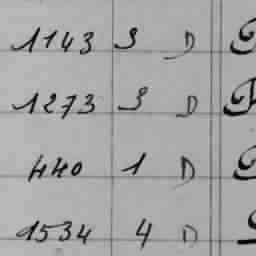 1143 3 D
1273 3 D
440 1 D
1534 4 D